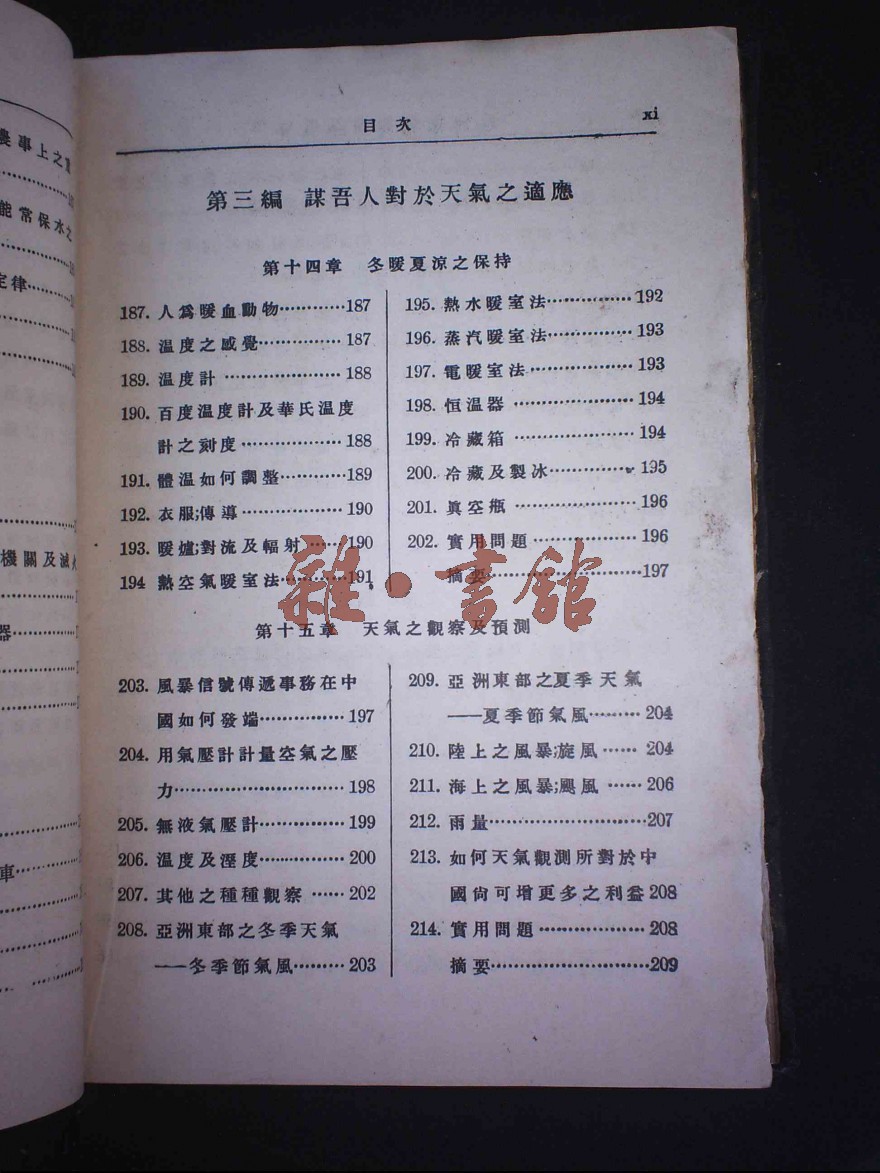 目次
xi
第三編 謀吾人對於天氣之適應
第十四章 冬暖夏涼之保持
187. 人爲暖血動物············187
188. 温度之感覺··············· 187
189. 温度計 ····················· 188
190. 百度温度計及華氏温度
計之刻度·················· 188
191. 體温如何調整············189
192. 衣服;傳導·················· 190
193. 暖爐;對流及輻射 ······190
194 熱空氣暖室法············191
195. 熱水暖室法···············192
196. 蒸汽暖室法···············193
197. 電暖室法··················193
198. 恒温器 ····················· 194
199. 冷藏箱 ····················· 194
200. 冷藏及製冰···············195
201. 眞空瓶 ····················· 196
202. 實用問題 ·················· 196
摘要···························197
第十五章 天氣之觀察及預測
203. 風暴信號傳遞事務在中
國如何發端··············· 197
204. 用氣壓計計量空氣之壓
力······························ 198
205. 無液氣壓計··············· 199
206. 温度及溼度··············· 200
207. 其他之種種觀察 ······ 202
208. 亞洲東部之冬季天氣
——冬季節氣風········· 203
209. 亞洲東部之夏季天氣
——夏季節氣風········· 204
210. 陸上之風暴;旋風 ······ 204
211. 海上之風暴;颶風 ······ 206
212. 雨量···························207
213. 如何天氣觀測所對於中
國尙可增更多之利益 208
214. 實用問題 ·················· 208
摘要···························209
農事上之
能常保水之
定律
機關及滅火
器
車
雜·書館